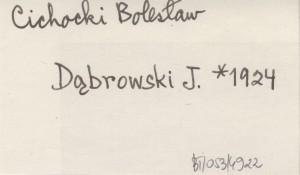 Cichocki Bolesław
Dąbrowski J. *1924
BI/053/4922